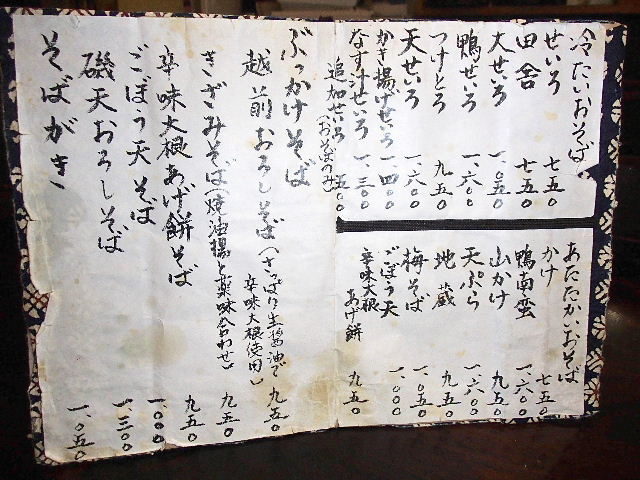 冷たいおそば
せいろ 七五〇
田舎 七五〇
大せいろ 一、〇五〇
鴨せいろ 一、六〇〇
つけとろ 九五〇
天せいろ 一、六〇〇
かき揚げせいろ 一、四〇〇
なす汁せいろ 一、三〇〇
追加せいろ(おそばのみ) 五〇〇
あたたかいおそば
かけ 七五〇
鴨南蛮 一、六〇〇
山かけ 九五〇
天ぷら 一、六〇〇
地蔵 九五〇
梅そば 一、〇五〇
ごぼう天 一、〇〇〇
辛味大根あげ餅 九五〇
ぶっかけそば
越前おろしそば(さっぱり生醤油で 九五〇
辛味大根使用)
きざみそば(焼油揚と薬味合わせ) 九五〇
辛味大根あげ餅そば 九五〇
ごぼう天そば 一、〇〇〇
磯天おろしそば 一、三〇〇
そばがき 一、〇五〇